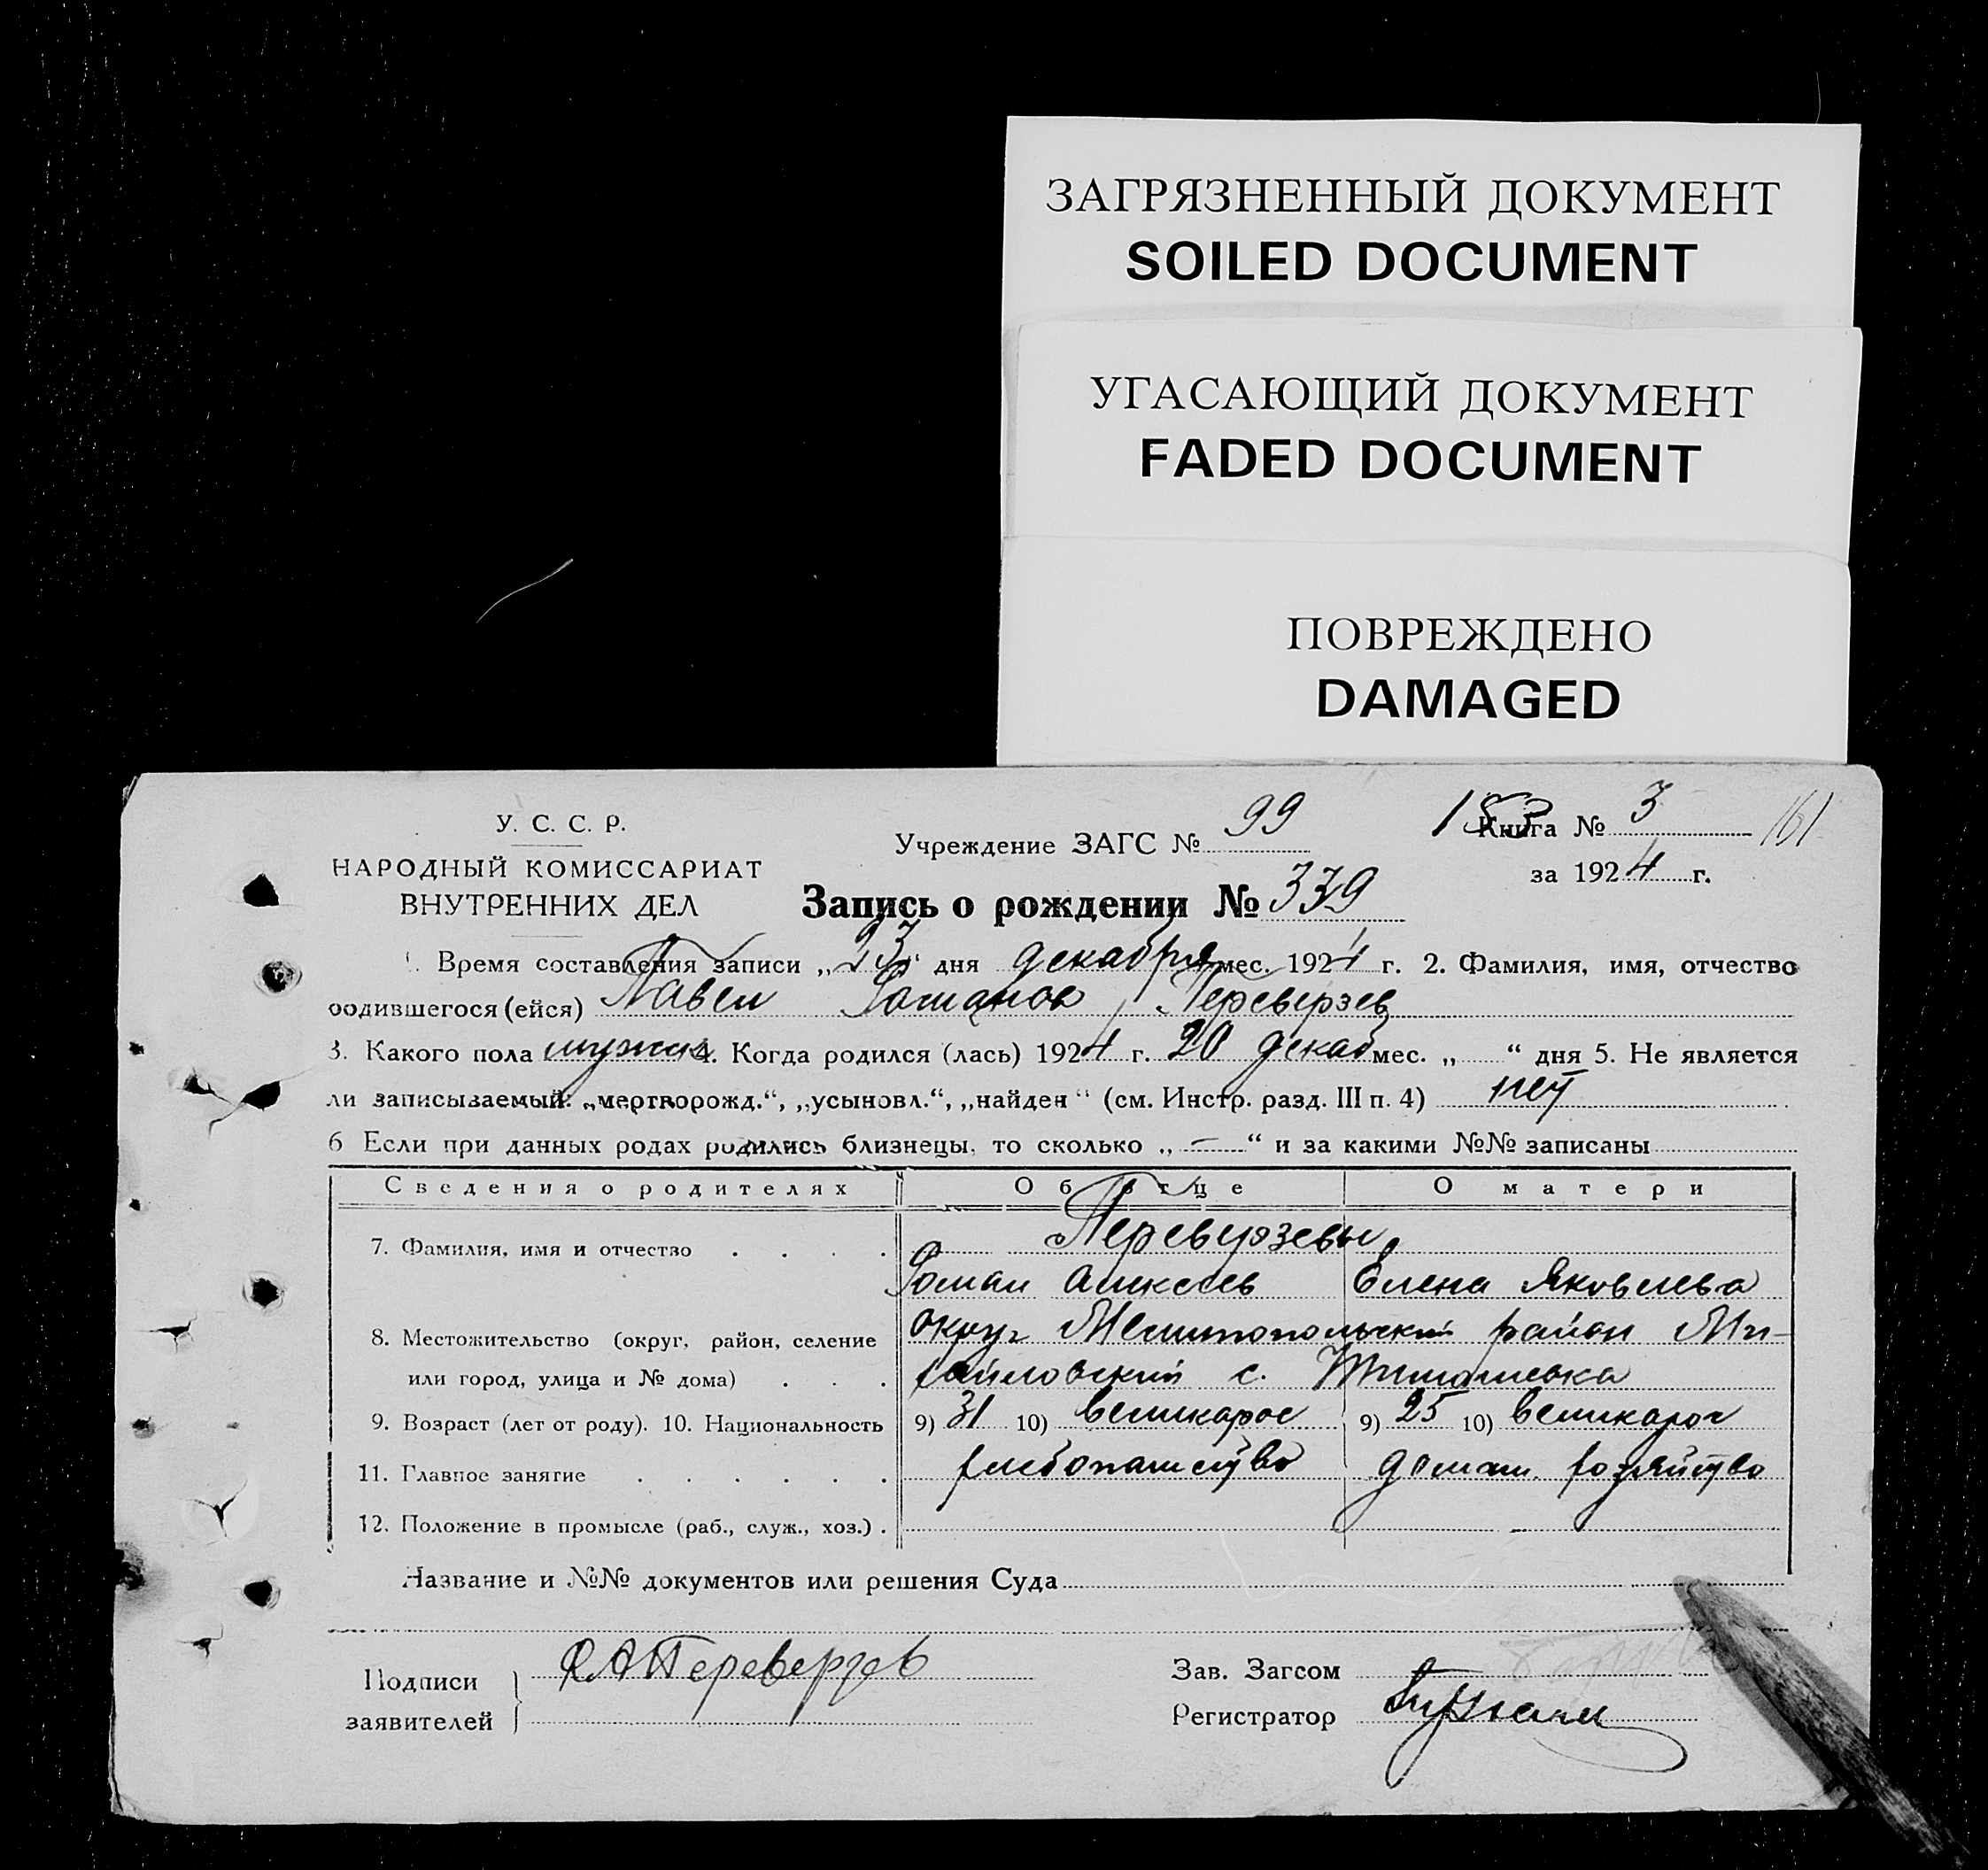 ЗАГРЯЗНЕННЫЙ ДОКУМЕНТ
SOILED DOCUMENT
УГАСАЮЩИЙ ДОКУМЕНТ
FADED DOCUMENT
ПОВРЕЖДЕНО
DAMAGED
У. С. С. Р.
НАРОДНЫЙ КОМИССАРИАТ
ВНУТРЕННИХ ДЕЛ
Учреждение ЗАГС № 99
153 Книга № 3 161
за 1924 г.
Запись о рождении № 339
1. Время составления записи „23“ дня декабря мес. 1924 г. 2. Фамилия, имя, отчество
родившегося (ейся) Павел Романов Переверзев
3. Какого пола мужск 4. Когда родился (лась) 1924 г. 20 декаб мес. „ “ дня 5. Не является
ли записываемый: „мертворожд.“, „усыновл.“, „найден“ (см. Инстр. разд. III п. 4) нет
6 Если при данных родах родились близнецы, то сколько „—“ и за какими №№ записаны
Сведения о родителях Об отце О матери
7. Фамилия, имя и отчество . . . . Переверзевы
Роман Алексеев Елена Яковлева
8. Местожительство (округ, район, селение округ Мелитопольский район Ми-
или город, улица и № дома) . . . хайловский с. Тимашевка
9. Возраст (лет от роду). 10. Национальность 9) 31 10) великорос 9) 25 10) великорос
11. Главное занятие . . . . . . хлебопашество домаш. хозяйство
12. Положение в промысле (раб., служ., хоз.) .
Название и №№ документов или решения Суда
Подписи заявителей Р А Переверзев
Зав. Загсом
Регистратор